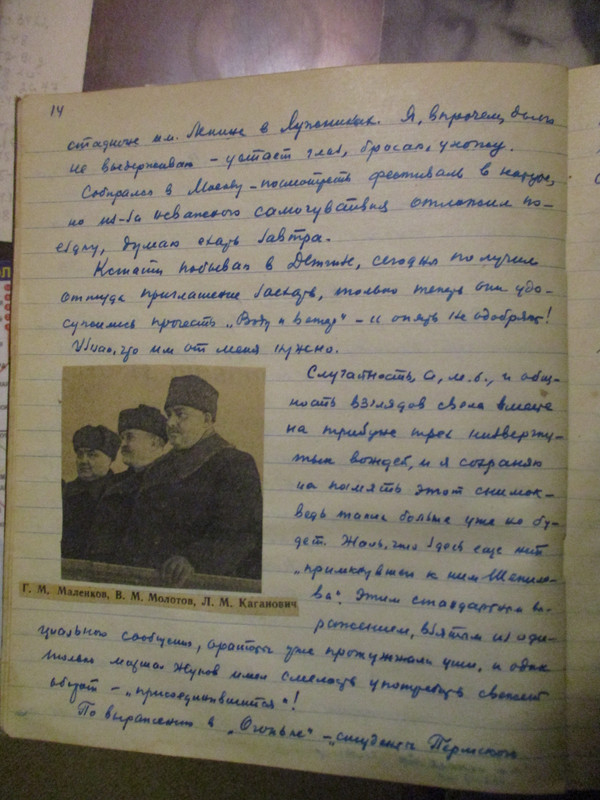 14
стадионе им. Ленина в Лужниках. Я, впрочем, долго
не выдерживаю – устает глаз, бросаю, ухожу.
Собирался в Москву – посмотреть фестиваль в натуре,
но из-за неважного самочувствия отложил по-
ездку, думаю ехать завтра.
Кстати побывал в Детгизе, сегодня получил
оттуда приглашение заехать, только теперь они удо-
сужились прочесть „Воду и ветер“ – и опять не одобряют!
что им от меня нужно.
Случайность, а, м.б., и общ-
ность взглядов свела вместе
на трибуне трех низвергну-
тых вождей, и я сохраняю
на память этот снимок –
ведь таких больше уже не бу-
дет. Жаль, что здесь еще нет
„примкнувшего к ним Шепило-
ва“. Этим стандартным вы-
ражением, взятым из офи-
Г. М. Маленков, В. М. Молотов, Л. М. Каганович
циального сообщения, ораторы уже прожужжали уши, и один
только маршал Жуков имел смелость употребить свежий
оборот – „присоединившийся“!
По выражению в „Огоньке“ – „студенты Пермского